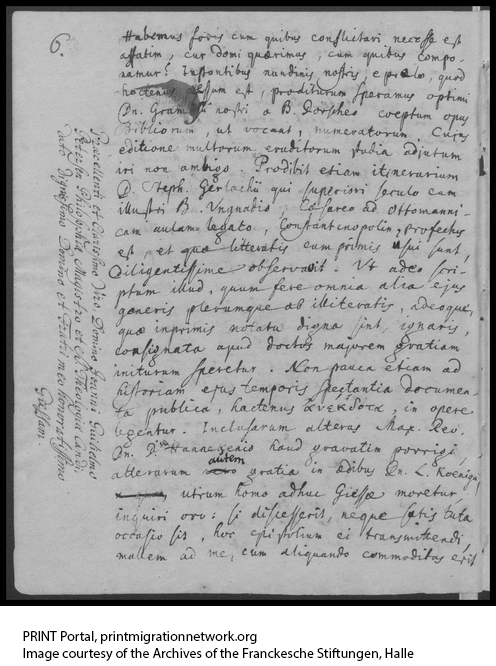 6.
Habemus foris cum quibus conflictari necesse est
affatim, cur domi quærimus, cum quibus compo-
namur? Instantibus nundinis nostris, e prælo, quod
hactenus est, proditurum speramus optimi
Dn. nostri a B. Dorscheo cœptum opus
Bibliorum, ut vocant, numeratorum. Cuius
editione multorum eruditorum studia adjutum
iri non ambigo. Prodibit etiam itinerarium
D. Steph. Gerlachii qui superiori seculo cum
illustri B. Ungnadio, Cæsareo ad Ottomanni-
cam aulam legato, Constantinopolin, profectus
est, et quæ litteratis cum primis usui sunt,
diligentissime observavit. Ut adeo scri-
ptum illud, quum fere omnia alia ejus
generis plerumque ab illiteratis, adeoque,
quæ inprimis notatu digna sint, ignaris,
consignata apud doctos majorem gratiam
initurum speretur. Non pauca etiam ad
historiam ejus temporis spectantia documen-
ta publica, hactenus ἀνέκδοτα, in opere
legentur. Inclusarum alteras Max. Rev.
Dn. D. Hannekenio haud gravatim porrigi,
alterarum autem gratia in ædibus Dn. L. Koenigii,
utrum homo adhuc Giessæ moretur
inquiri oro: si discesserit, neque satis tuta
occasio sit, hoc epistolium ei transmittendi,
mallem ad me, cum aliquando commoditas erit
Præcellenti et Clarissimo Viro Domino Joanni Guilhelmo
Philosophiæ Magistro et S. Theologiæ Candi-
dato Dignissimo Domino et Fautori meo honoratissimo
Giessam.
PRINT Portal, printmigrationnetwork.org
Image courtesy of the Archives of the Franckesche Stiftungen, Halle